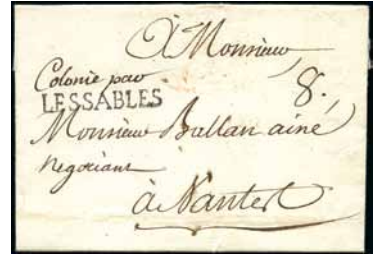 à Monsieur
Colonie par
LES SABLES
8.
Monsieur Ballan ainé
negociant
à Nantes